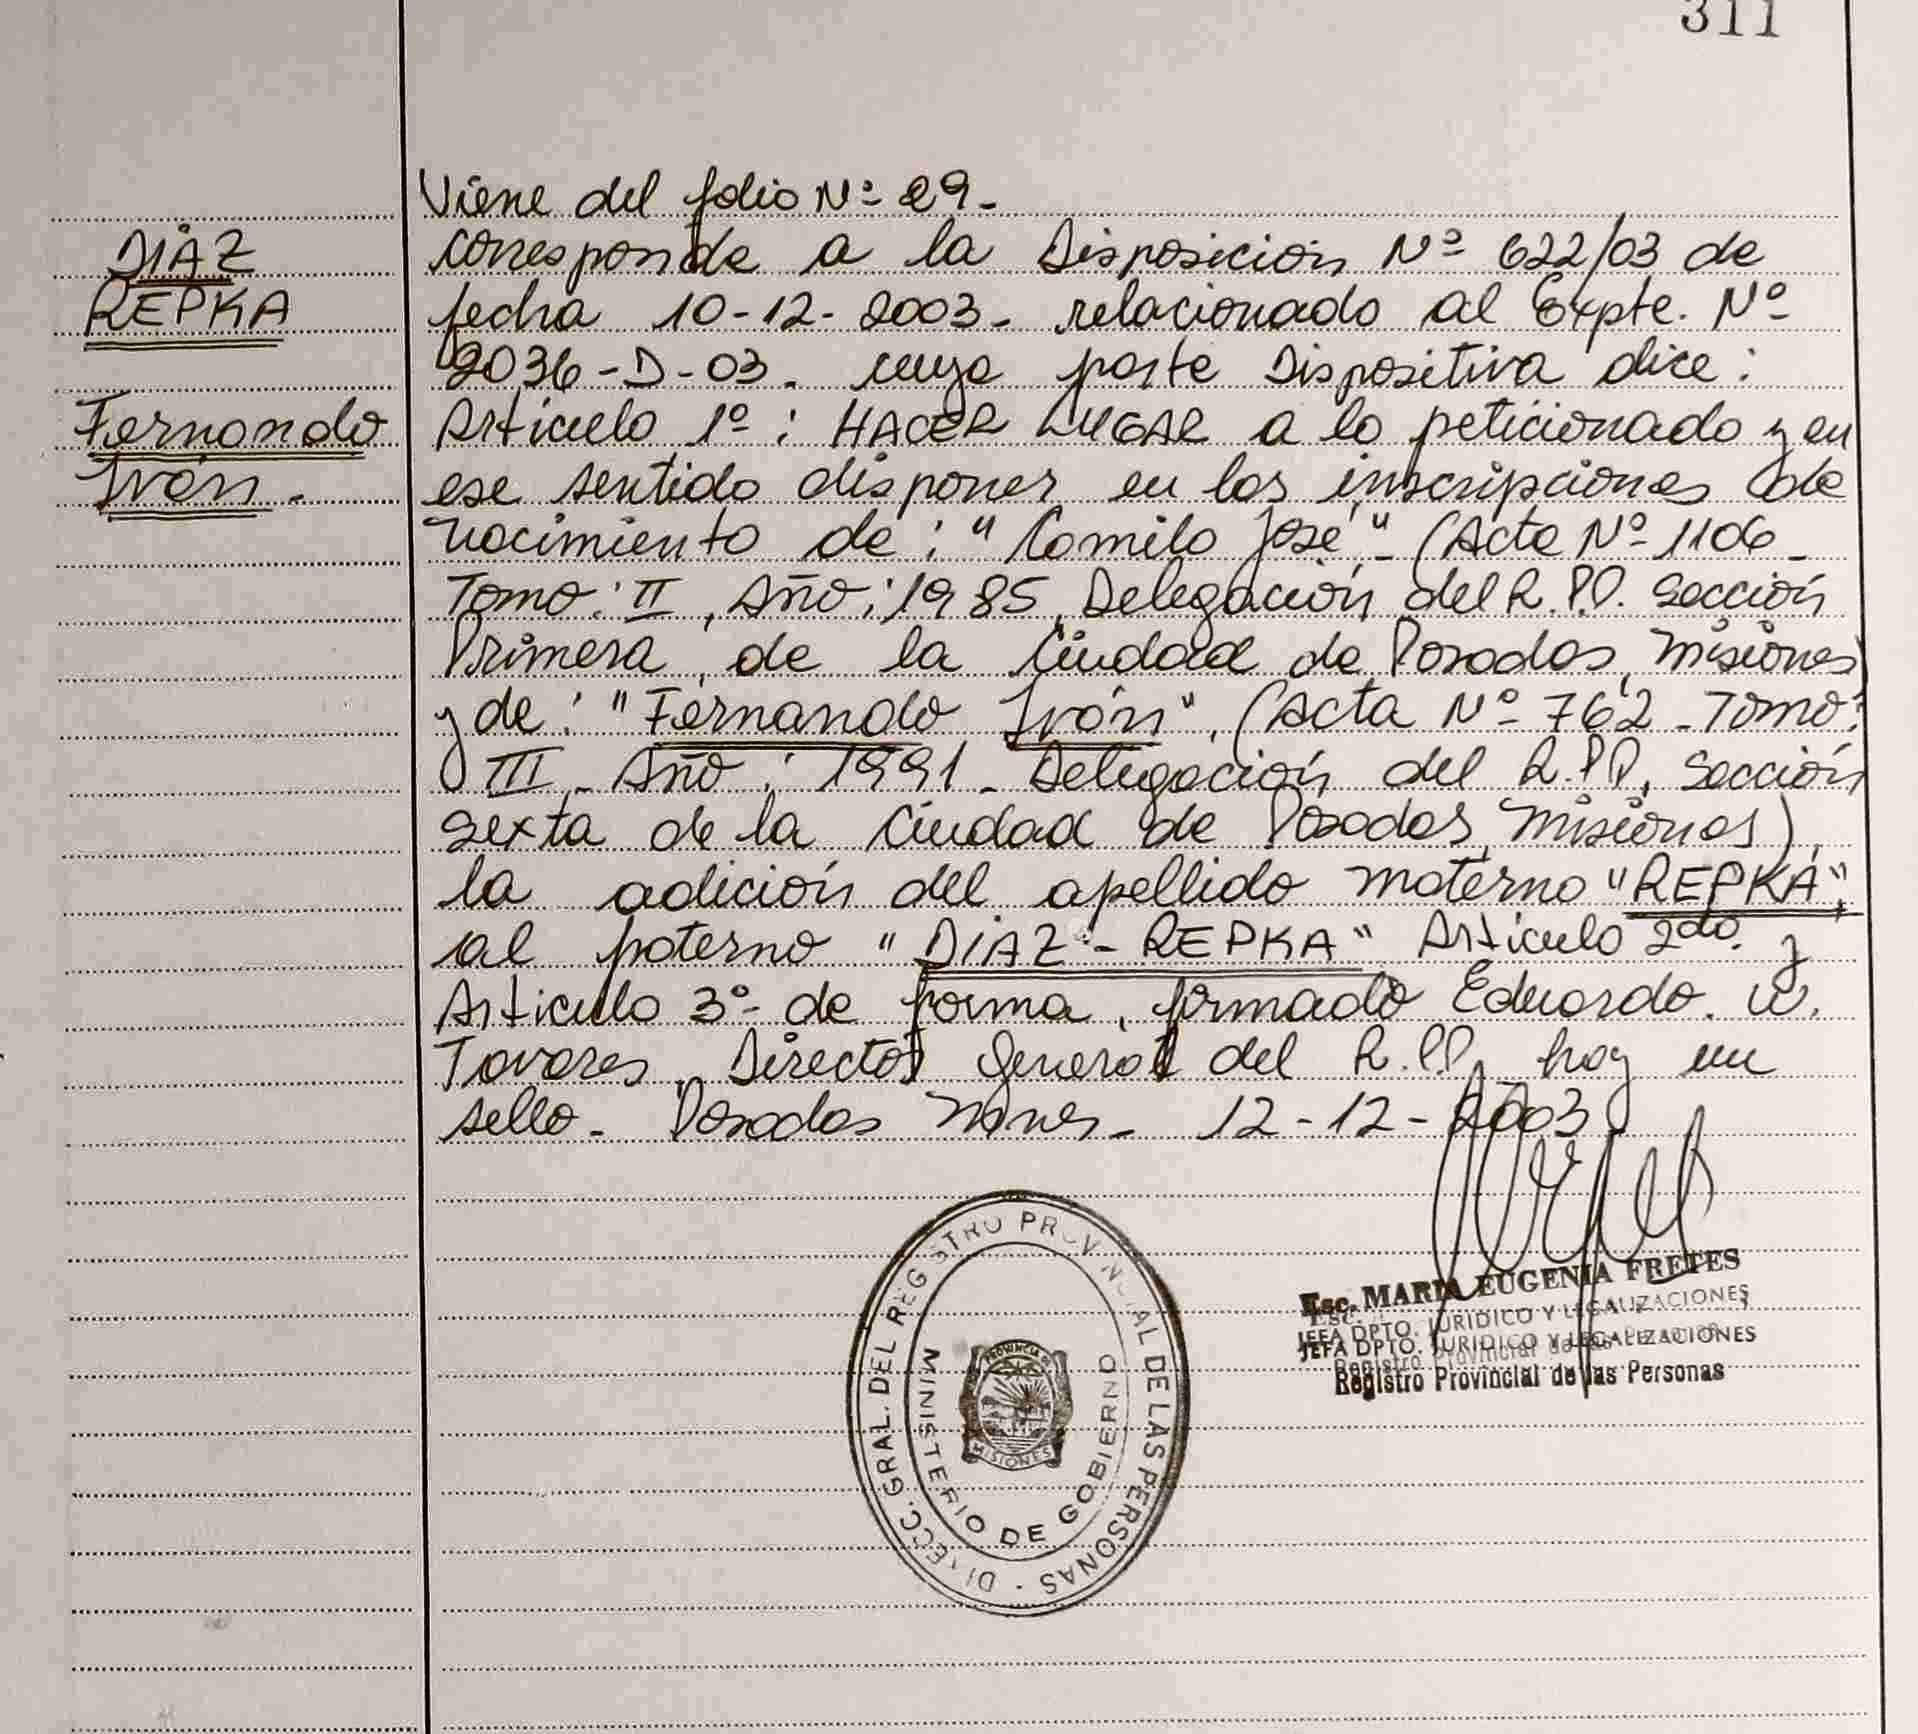 311
Viene del folio Nº 29-
DIAZ
REPKA
Fernando
Iván.
corresponde a la Disposición Nº 622/03 de
fecha 10-12-2003- relacionado al Expte. Nº
2036-D-03. cuya parte Dispositiva dice:
Artículo 1º: HACER LUGAR a lo peticionado y en
ese sentido disponer en las inscripciones de
nacimiento de: "Camilo José"- (Acta Nº 1106-
Tomo: II, Año: 1985, Delegación del R.P.P. Sección
Primera, de la Ciudad de Posadas, Misiones
y de: "Fernando Iván", (Acta Nº 762-Tomo:
III- Año: 1991- Delegación del R.P.P, Sección
Sexta de la Ciudad de Posadas, Misiones),
la adición del apellido materno "REPKA",
al paterno "DIAZ - REPKA" Artículo 2do. y
Artículo 3º- de forma, firmado Eduardo. W.
Tavares, Director General del R.P.P, hay un
sello- Posadas Mnes- 12-12-2003
DIRECC. GRAL. DEL REGISTRO PROVINCIAL DE LAS PERSONAS
MINISTERIO DE GOBIERNO
PROVINCIA DE
MISIONES
Esc. MARIA EUGENIA FRETES
JEFA DPTO. JURIDICO Y LEGALIZACIONES
JEFA DPTO. JURIDICO Y LEGALIZACIONES
Registro Provincial de las
Registro Provincial de las Personas